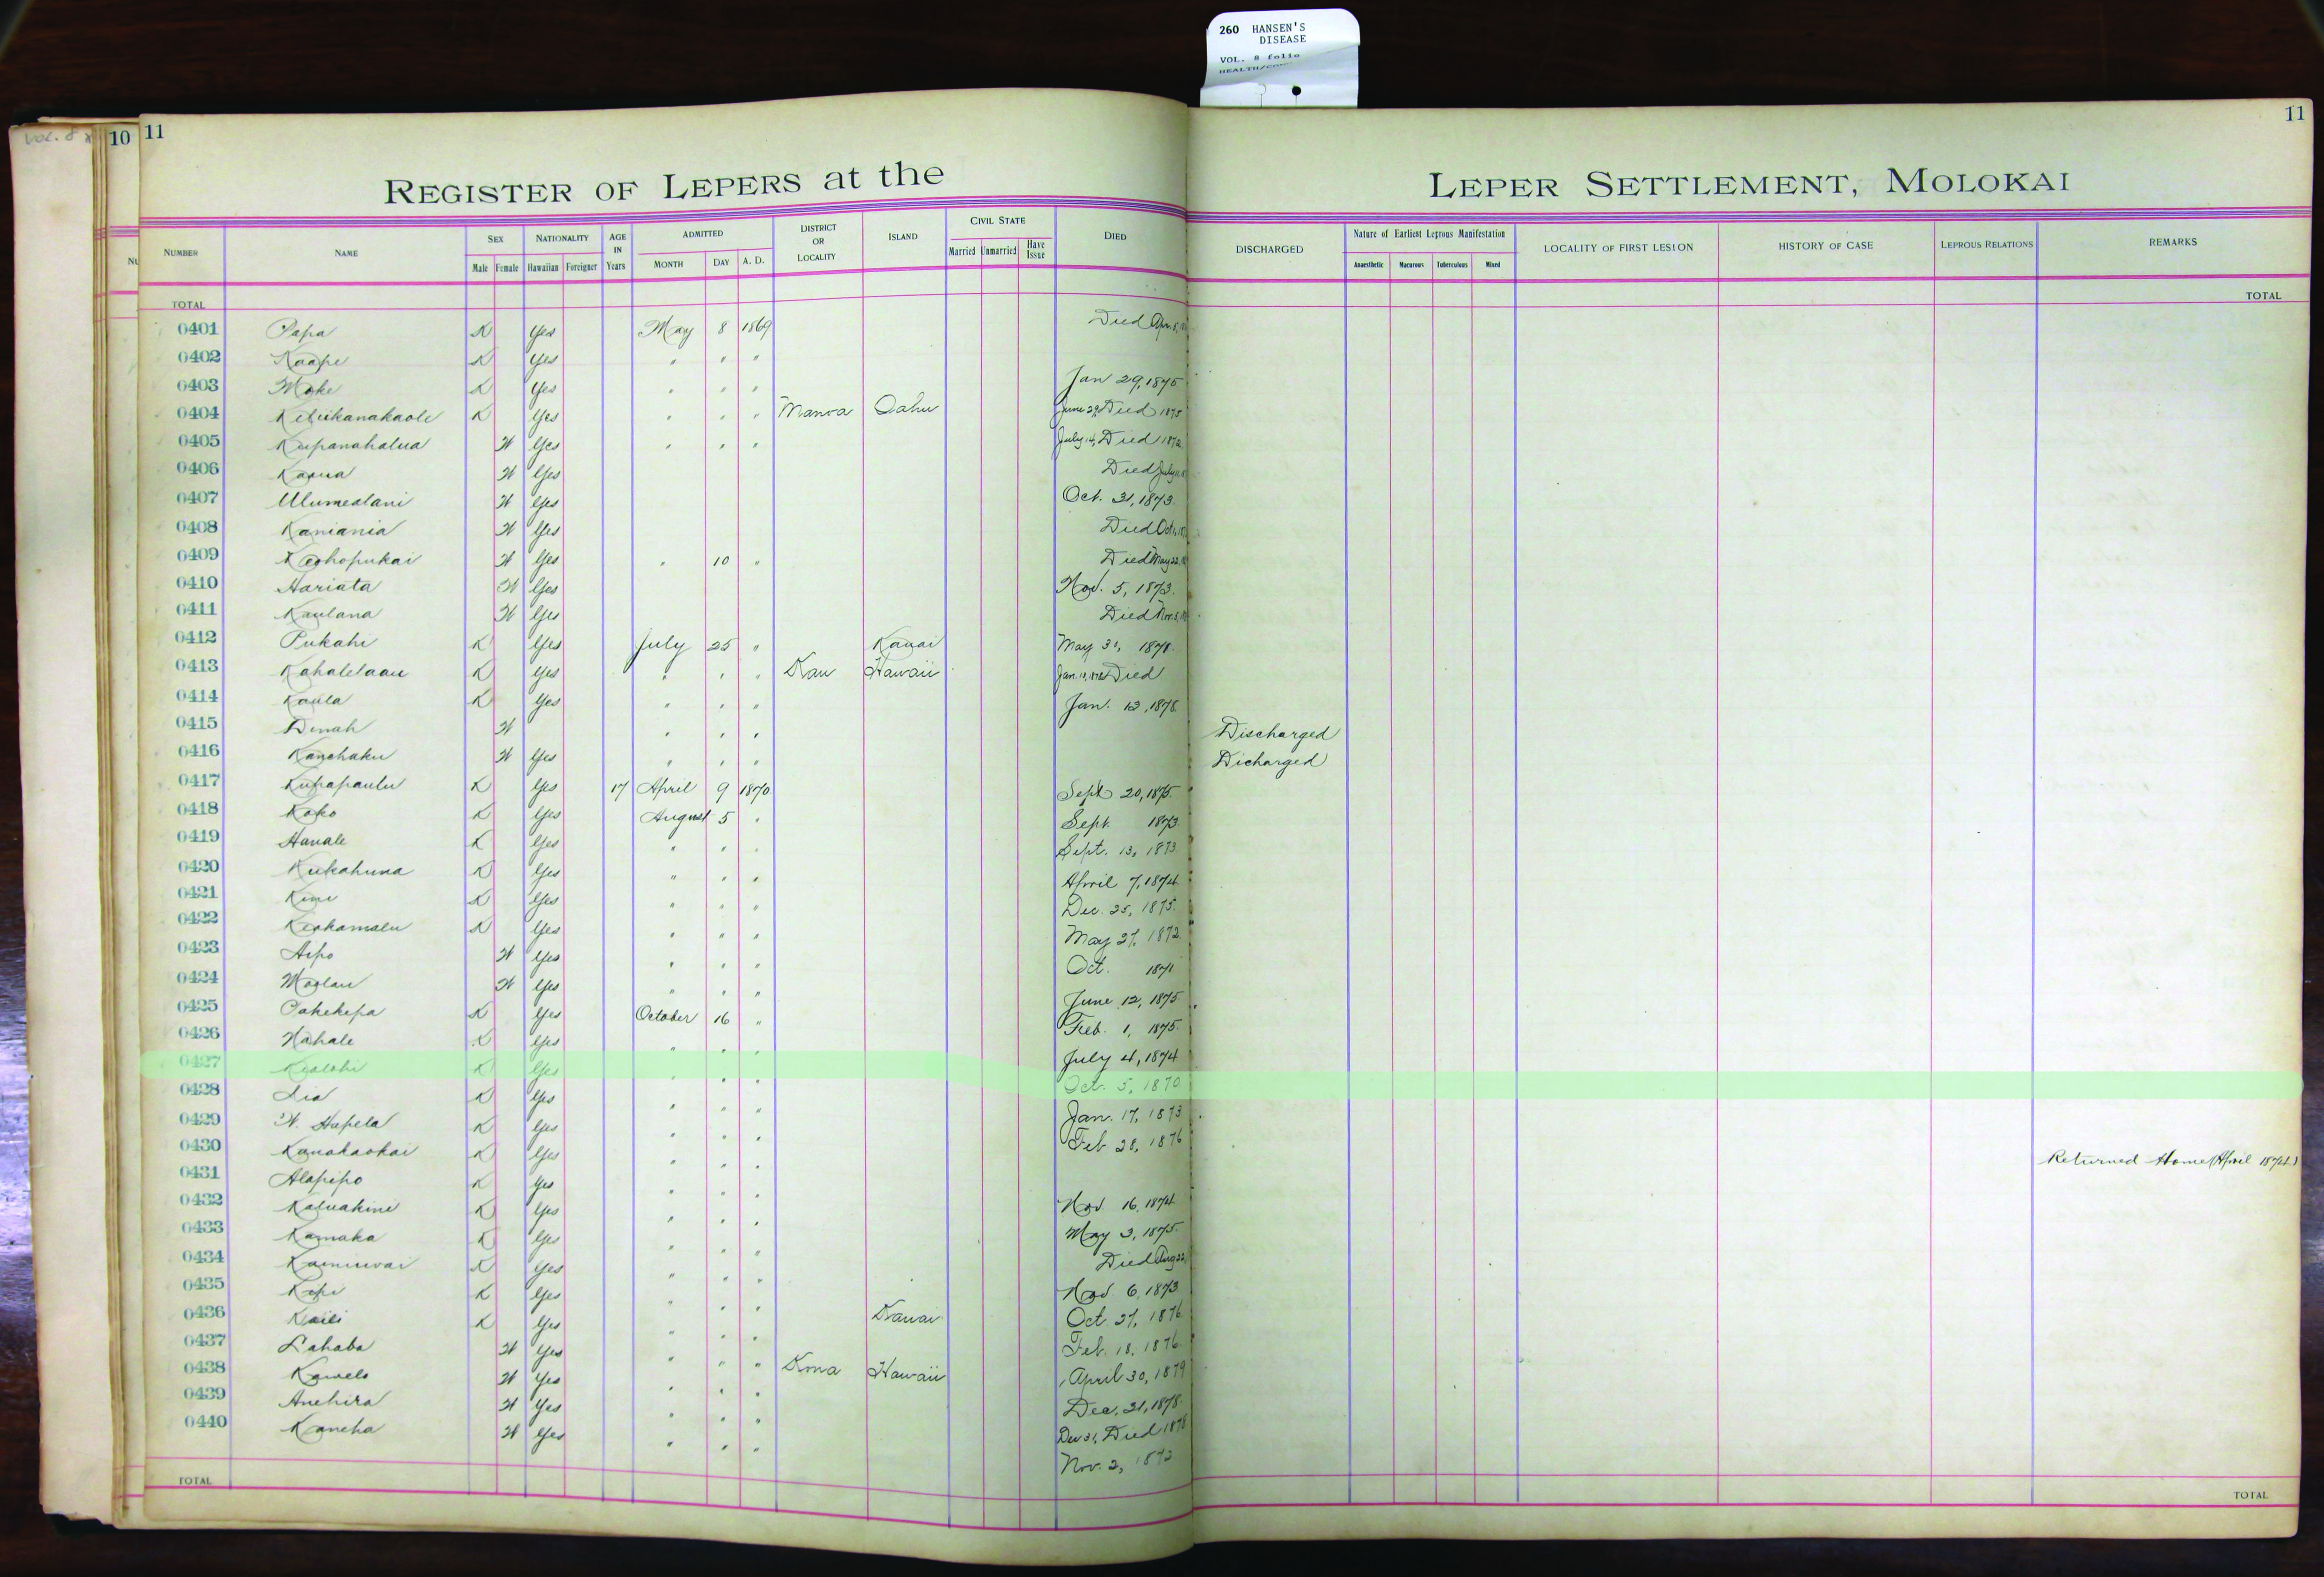 260 HANSEN'S
DISEASE
VOL. 8 folio
VOL. 8
10
11
11
REGISTER OF LEPERS at the
LEPER SETTLEMENT, MOLOKAI
NUMBER NAME SEX Male Female NATIONALITY Hawaiian Foreigner AGE IN Years ADMITTED MONTH DAY A. D. DISTRICT OR LOCALITY ISLAND CIVIL STATE Married Unmarried Have Issue DIED DISCHARGED Nature of Earliest Leprous Manifestation Anaesthetic Macurous Tuberculous Mixed LOCALITY OF FIRST LESION HISTORY OF CASE LEPROUS RELATIONS REMARKS
TOTAL TOTAL
0401 Papa K Yes May 8 1869 Died Apr. 8,
0402 Kaape K Yes " " "
0403 Moke K Yes " " " Jan 29, 1875
0404 Keliikanakaole K Yes " " " Manoa Oahu June 29, Died 1875
0405 Kupanahalua W Yes " " " July 14, Died 1872
0406 Kaaua W Yes Died July
0407 Ulumealani W Yes Oct. 31, 1873.
0408 Kaniania W Yes Died Oct.
0409 Keohopukai W Yes " 10 " Died May 22,
0410 Hariata W Yes Nov. 5, 1873.
0411 Kaulana W Yes Died Nov. 3,
0412 Pukahi K Yes July 25 " Kauai May 31, 1878.
0413 Kahalelaau K Yes " " " Kau Hawaii Jan. Died
0414 Kaula K Yes " " " Jan. 13, 1878.
0415 Dinah W " " " Discharged
0416 Kanehaku W Yes " " " Dicharged
0417 Kupapaulu K Yes 17 April 9 1870 Sept 20, 1875.
0418 Koko K Yes August 5 " Sept. 1873
0419 Hanale K Yes " " " Sept. 13, 1873
0420 Kukahuna K Yes " " " April 7, 1874
0421 Kini K Yes " " " Dec. 25, 1875.
0422 Keohamalu K Yes " " " May 27, 1872.
0423 Aipo W Yes " " " Oct. 1871
0424 Moolau W Yes " " " June 12, 1875
0425 Pahekepa K Yes October 16 " Feb. 1, 1875.
0426 Nahale K Yes " " " July 4, 1874
0427 Kealohi K Yes " " " Oct. 5, 1870
0428 Lia K Yes " " " Jan. 17, 1873
0429 W. Hapela K Yes " " " Feb 28, 1876
0430 Kanakaokai K Yes " " " Returned Home (April 1874.)
0431 Alapipo K Yes " " " Nov 16, 1874
0432 Kaluakini K Yes " " " May 3, 1875.
0433 Kamaka K Yes " " " Died Aug 22,
0434 Kainiwai K Yes " " " Nov. 6, 1873
0435 Kepi K Yes " " " Oct 27, 1876
0436 Kaili K Yes " " " Kauai Feb. 18, 1876
0437 Lahaba W Yes " " " April 30, 1879
0438 Kawelo W Yes " " " Kona Hawaii Dec. 31, 1878.
0439 Anehira W Yes " " " Dec 31, Died 1878
0440 Kaneha W Yes " " " Nov. 2, 1872
TOTAL TOTAL